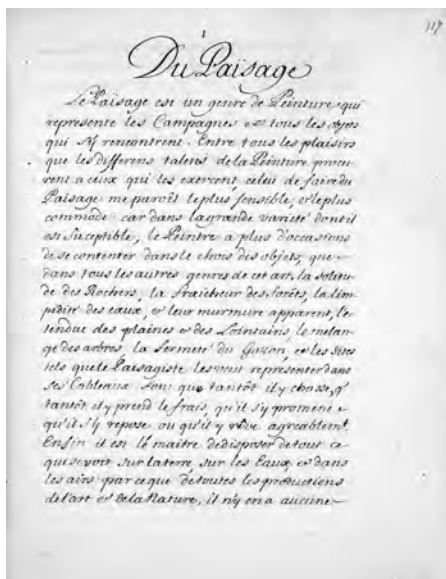 117
1
Du Païsage
Le Païsage est un genre de Peinture qui
represente les Campagnes et tous les objets
qui s'y rencontrent. Entre tous les plaisirs
que les differens talens de la Peinture procu-
rent a ceux qui les exercent, celui de faire du
Paisage me paroît le plus sensible, et le plus
commode car dans la grande varieté dont il
est suceptible, le Peintre a plus d'occasions
de se contenter dans le choix des objets, que
dans tous les autres genres de cet art. la solitu-
de des Rochers, la fraicheur des forêts, la lim-
pidité des eaux, et leur murmure apparent, l'e-
tendue des plaines et des Lointains, le mélan-
ge des arbres, la fermeté du Gazon, et les Sites
tels que le Paisagiste les veut representer dans
ses Tableaux font que tantôt il y chasse, 
tantôt il y prend le frais, qu'il s'y promene
qu'il s'y repose ou qu'il y rêve agreablemt.
Enfin il est le maître de disposer de tout ce
qui se voit sur la terre, sur les Eaux, et dans
les airs parce que de toutes les productions
de l'art et de la Nature, il n'y en a aucune